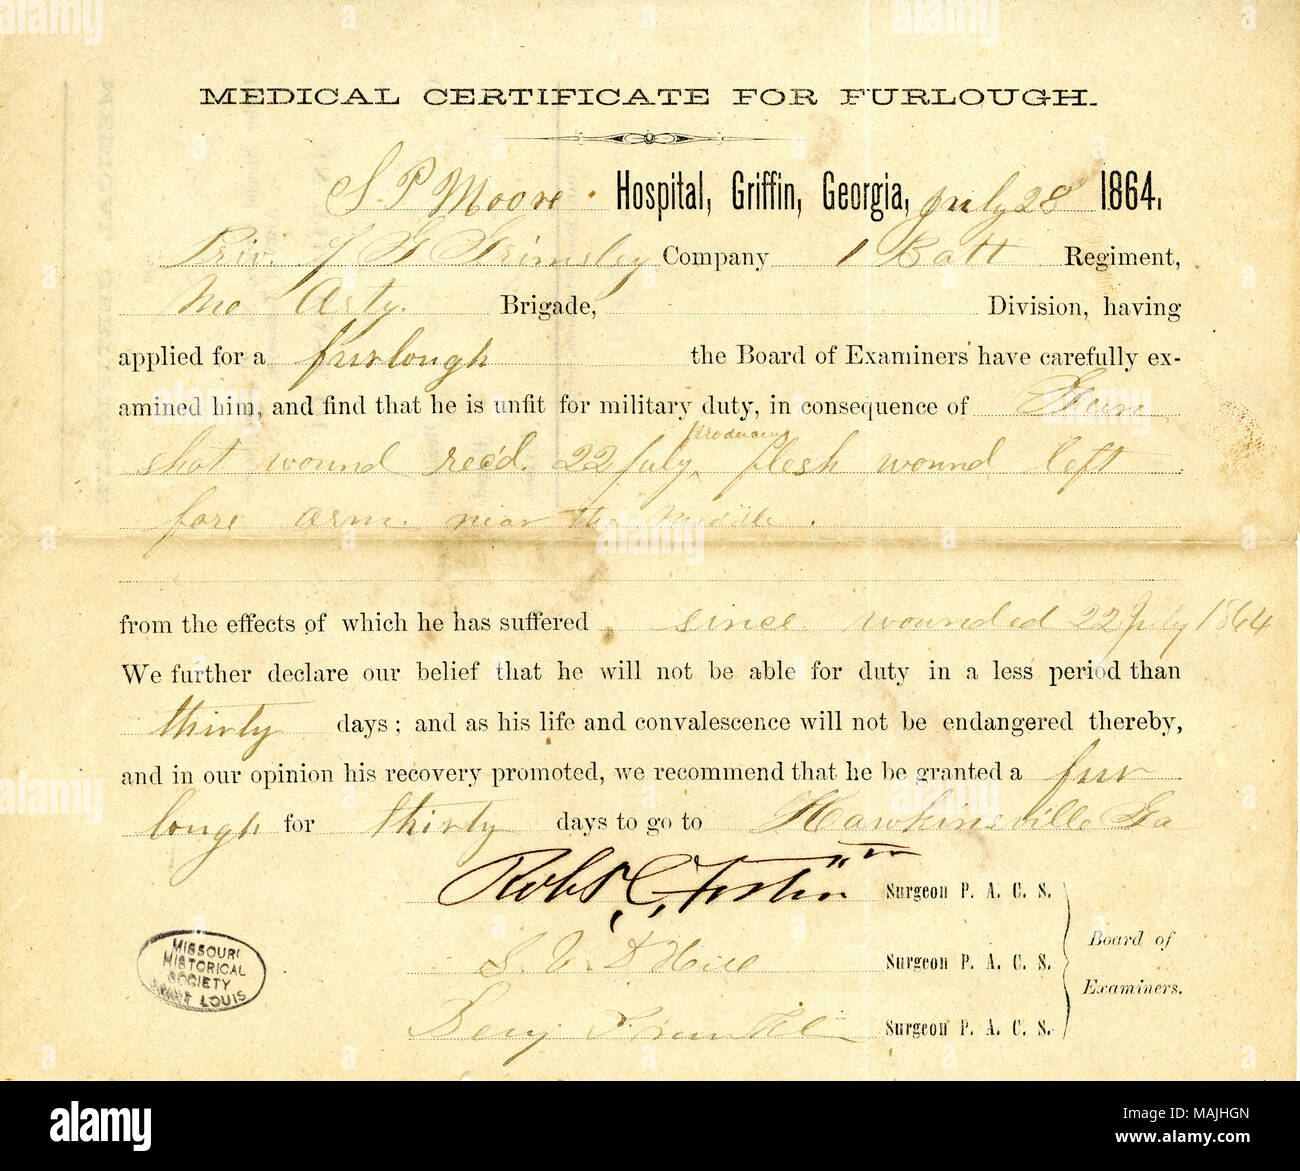 MEDICAL CERTIFICATE FOR FURLOUGH.
S. P. Moore. Hospital, Griffin, Georgia, July 28 1864.
Priv. Grimsley Company 1 Batt Regiment,
Mo Arty. Brigade, Division, having
applied for a furlough the Board of Examiners have carefully ex-
amined him, and find that he is unfit for military duty, in consequence of Gun
shot wound rec'd. 22 July, producing flesh wound left
fore arm near the middle.
from the effects of which he has suffered since wounded 22 July 1864
We further declare our belief that he will not be able for duty in a less period than
thirty days; and as his life and convalescence will not be endangered thereby,
and in our opinion his recovery promoted, we recommend that he be granted a fur
lough for thirty days to go to Hawkinsville Ga
Robt. C. Surgeon P. A. C. S.
S. V. D. Hill Surgeon P. A. C. S.
Benj. Surgeon P. A. C. S.
Board of
Examiners.
MISSOURI
HISTORICAL
SOCIETY
SAINT LOUIS
alamy
Image ID: MAJHGN
www.alamy.com